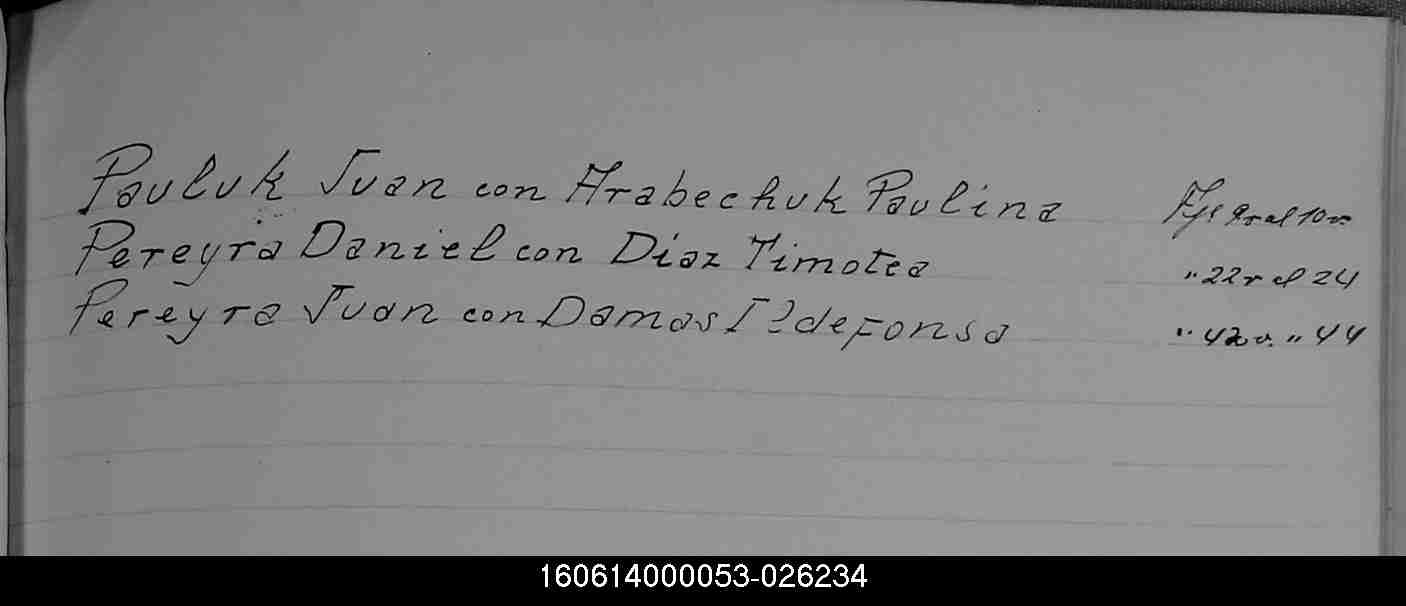 Pauluk Juan con Hrabechuk Paulina Fjs 9 r al 10 v
Pereyra Daniel con Diaz Timotea " 22 r al 24
Pereyra Juan con Damas Ildefonsa " 42 v. " 44
160614000053-026234